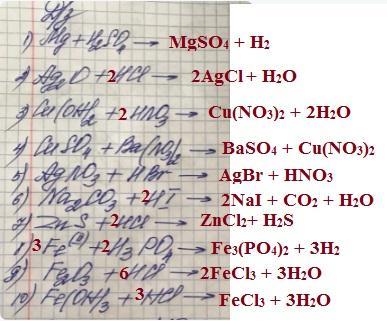 Д/з
1) Mg + H₂SO₄ → MgSO₄ + H₂
2) Ag₂O + 2HCl → 2AgCl + H₂O
3) Cu(OH)₂ + 2HNO₃ → Cu(NO₃)₂ + 2H₂O
4) CuSO₄ + Ba(NO₃)₂ → BaSO₄ + Cu(NO₃)₂
5) AgNO₃ + HBr → AgBr + HNO₃
6) Na₂CO₃ + 2HI → 2NaI + CO₂ + H₂O
7) ZnS + 2HCl → ZnCl₂+ H₂S
8) 3Fe + 2H₃PO₄ → Fe₃(PO₄)₂ + 3H₂
9) Fe₂O₃ + 6HCl → 2FeCl₃ + 3H₂O
10) Fe(OH)₃ + 3HCl → FeCl₃ + 3H₂O